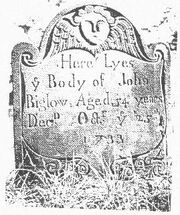 Here Lyes
ye Body of John
Biglow, Aged 54 years
Decd. Octr. ye 25
1733